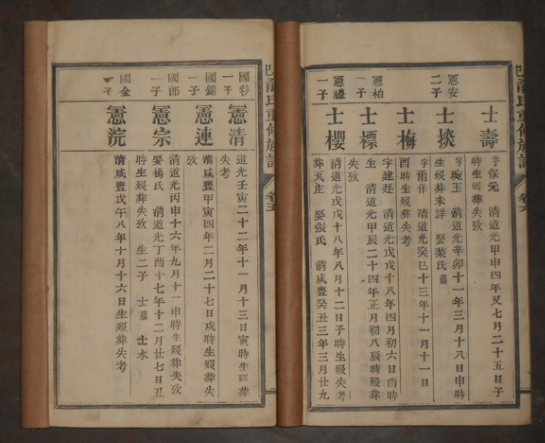 氏重修族譜
憲安
二子
士壽
字保元 清道光甲申四年又七月二十五日子
時生歿葬失攷
士掞
字琬玉 清道光辛卯十一年三月十八日申時
生歿葬未詳 娶葉氏
憲柏
一子
士梅
清道光癸巳十三年十一月十一日
酉時生歿葬失考
士標
字建廷 清道光戊戌十八年四月初六日酉時
生 清道光甲辰二十四年正月初八辰時歿葬
失攷
憲禮
一子
士櫻
清道光戊戌十八年八月十二日子時生歿失考
葬瓦庄 娶張氏 清咸豐癸丑三年三月廿九
國彩
一子
憲清
道光壬寅二十二年十一月十三日寅時生歿葬
失考
國錦
一子
憲連
清咸豐甲寅四年二月二十七日戌時生歿葬失
攷
國郎
一子
憲宗
清道光丙申十六年九月十一申時生歿葬失攷
娶楊氏 清道光丁酉十七年十二月廿七日丑
時生歿葬失攷 生二子 士 士水
國金
憲浣
清咸豐戊午八年十月十六日生歿葬失考